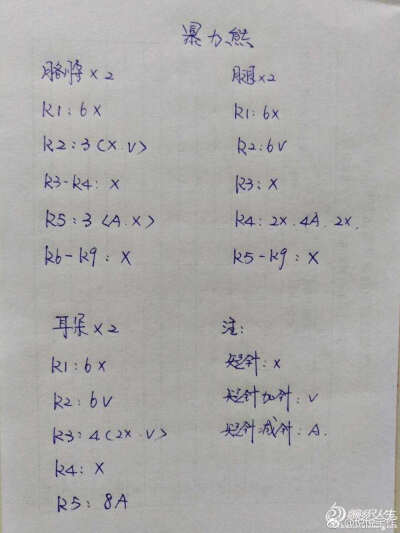 暴力熊
胳膊×2
R1:6X
R2:3(X.V)
R3-R4:X
R5:3(A.X)
R6-R9:X
腿×2
R1:6X
R2:6V
R3:X
R4:2X.4A.2X.
R5-R9:X
耳朵×2
R1:6X
R2:6V
R3:4(2X.V)
R4:X
R5:8A
注:
短针:X
短针加针:V
短针减针:A.